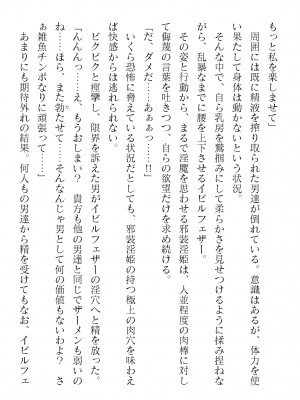 もっと私を楽しませて」
　周囲には既に精液を搾り取られた男達が倒れている。意識はあるが、体力を使
い果たして身体は動かないという状況。
　そんな中で自ら乳房を鷲掴みにして柔らかさを見せつけるように揉み捏ねな
がら、乱暴なまでに腰を上下させるイビルフェザー。
　その姿と行動から、まるで淫魔を思わせる邪装淫姫は、人並程度の肉棒に対し
て侮蔑の言葉を吐きつつ、自らの欲望だけを求め続ける。
「だ、ダメだ……あぁぁっ……!!」
　いくら恐怖に脅えている状況だとしても、邪装淫姫の持つ極上の肉穴を味わえ
ば快感からは逃れられない。
　ビクビクと痙攣し、限界を訴えた男がイビルフェザーの淫穴へと精を放った。
「んんんっ……え、もうおしまい？　貴方も他の男達と同じでザーメンも弱いの
ね……ほら、また勃たせて……そんなんじゃ男として何の価値もないわよ？　さ
ぁ雑魚チンポなりに頑張って……」
　あまりにも期待外れの結果。何人もの男達から精を受けてもなお、イビルフェ